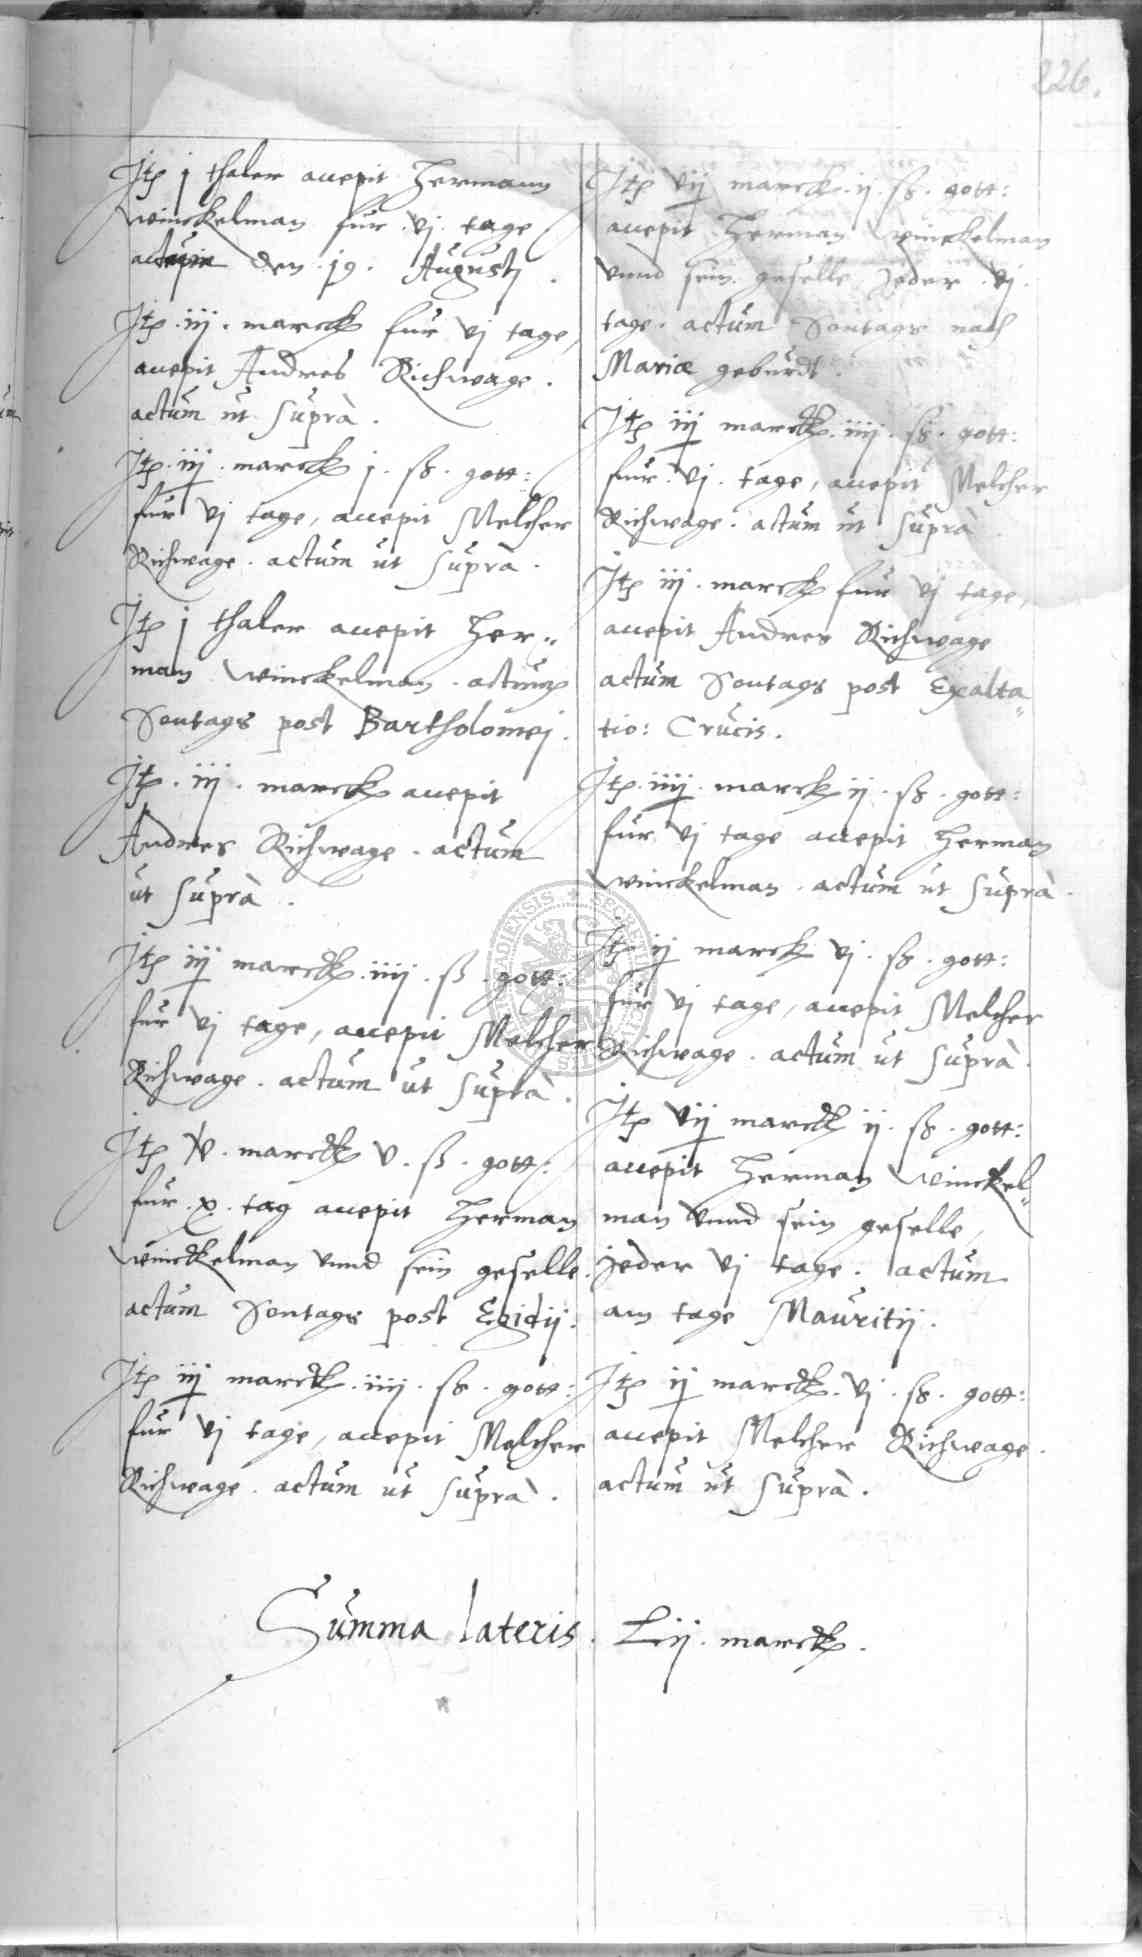 226.
Jtp j thaler accepit Hermann
Winckelman fur .vj. tage
actum den .19. Augustj .
Jtp .iij. marck fur vj tage,
accepit Andres Richwage .
actum ut suprà .
Jtp .iij. marck j . ß . gott:
fur vj tage, accepit Melcher
Richwage . actum ut suprà .
Jtp j thaler accepit Her„
man Winckelman . actum
Sontags post Bartholomej .
Jtp . iij . marck accepit
Andres Richwage . actum
ut suprà .
Jtp iij marck .iiij . ß . gott:
fur vj tage, accepit Melcher
Richwage . actum ut suprà .
Jtp v . marck v . ß . gott:
fur . x . tag accepit Herman
Winckelman vnnd sein geselle .
actum Sontags post Egidij .
Jtp iij marck .iiij . ß . gott:
fur vj tage, accepit Melcher
Richwage . actum ut suprà .
Jtp vij marck .ij . ß . gott:
accepit Herman Winckelman
vnnd sein geselle jeder .vj.
tage . actum Sontags nach
Mariæ geburdt .
Jtp iij marck .iiij . ß . gott:
fur vj . tage, accepit Melcher
Richwage . actum ut suprà
Jtp iij . marck fur vj tage,
accepit Andres Richwage
actum Sontags post Exalta„
tio: Crucis .
Jtp .iiij . marck ij . ß . gott:
fur vj tage accepit Herman
Winckelman . actum ut suprà .
Jtp ij marck vj . ß . gott:
fur vj tage, accepit Melcher
Richwage . actum ut suprà .
Jtp vij marck ij . ß . gott:
accepit Herman Winckel„
man vnnd sein geselle,
jeder vj tage . actum
am tage Mauritij .
Jtp ij marck . vj . ß . gott:
accepit Melcher Richwage .
actum ut suprà .
Summa lateris . Lij . marck .